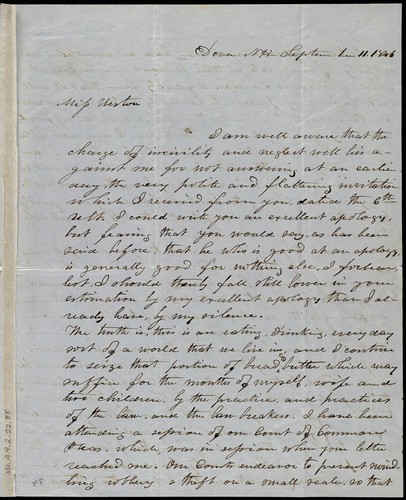 Dover NH September 11. 1846
Miss Weston
I am well aware that the
charge of incivility and neglect well lies a-
gainst me for not answering at an earlier
day, the very polite and flattering invitation
which I received from you, dated the 6th
ult. I could write you an excellent apology,
but fearing that you would say, as has been
said before, that he who is good at an apology,
is generally good for nothing else, I forbear,
lest, I should thereby fall still lower in your
estimation by my excellent apology than I al-
ready have, by my silence.
The truth is, this is an eating, drinking, every day
sort of a world that we live in, and I contrive
to seize that portion of bread, butter which may
suffice for the mouths of myself, wife and
two children, by the practice, and practices
of the law, and the law breakers. I have been
attending a session of our Court of Common
Pleas, which was in session when your letter
reached me. Our Courts endeavor to prevent
robbery & theft on a small scale, so that
Ms.A.9.2.22.98